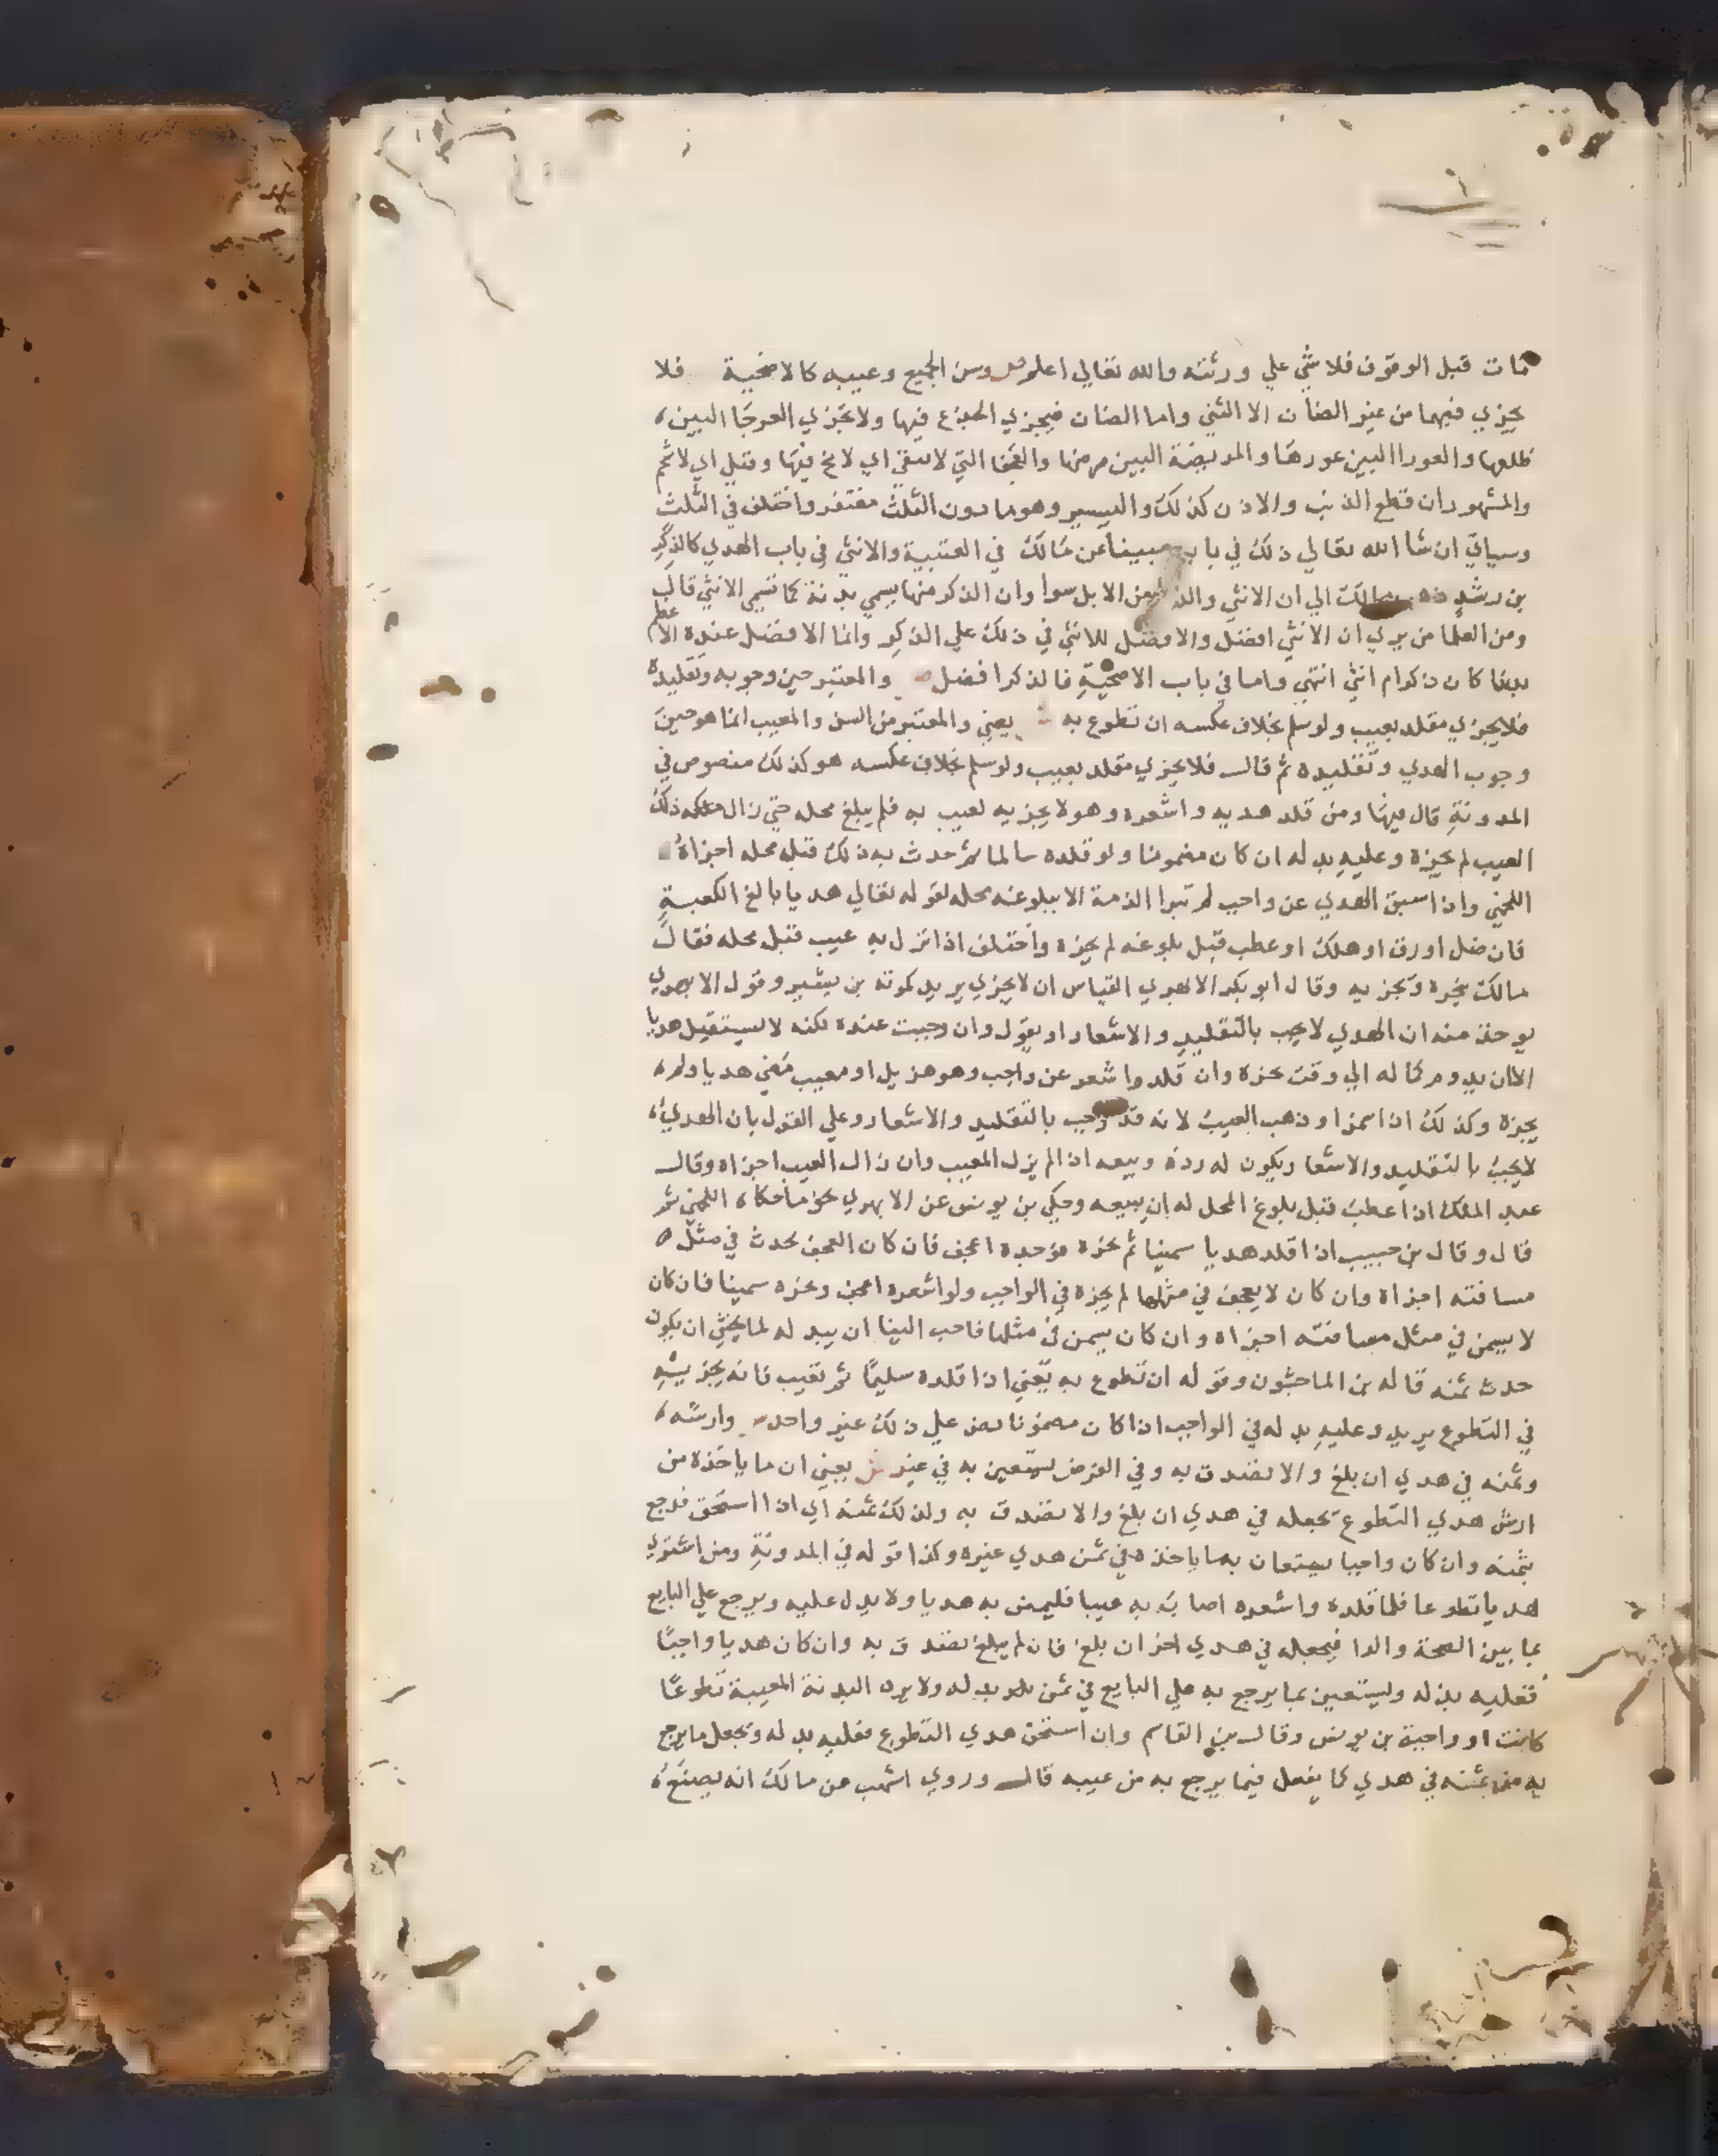 مات قبل الوقوف فلا شي علي ورثته والله تعالي اعلم ص وسن الجميع وعيبه كالاضحية فلا
يجزي فيهما من غير الضان الا الثني واما الضان فيجزي الجذع فيها ولا تجزي العرجا البين
ظلعها والعورا البين عورها والمريضة البين مرضها والعجفا التي لا تنقي اي لا مخ فيها وقيل اي لا شحم
والمشهور ان قطع الذنب والاذن كذلك واليسير وهو ما دون الثلث مغتفر واختلف في الثلث
وسياتي ان شا الله تعالي ذلك في بابه مبينا عن مالك في العتبية والانثي في باب الهدي كالذكر
بن رشد مالك الي ان الانثي والذكر من الابل سوا وان الذكر منها يسمي بدنة كما تسمي الانثي قال
ومن العلما من يري ان الانثي افضل والافضل للانثي في ذلك علي الذكر وانما الافضل عنده الاعظم
بدنا كان ذكرا ام انثي انتهي واما في باب الاضحية فالذكر افضل ص والمعتبر حين وجوبه وتقليده
فلا يجزي مقلد بعيب ولو سلم بخلاف عكسه ان تطوع به ش يعني والمعتبر من السن والعيب انما هو حين
وجوب الهدي وتقليده ثم قال فلا يجزي مقلد بعيب ولو سلم بخلاف عكسه هو كذلك منصوص في
المدونة قال فيها ومن قلد هديه واشعره وهو لا يجزيه لعيب به فلم يبلغ محله حتي زال ملكه ذلك
العيب لم يجزه وعليه بدله ان كان مضمونا ولو قلده سالما ثم حدث به ذلك قبل محله اجزاه
اللخمي واذا سيق الهدي عن واجب لم تبرا الذمة الا ببلوغه محله لقوله تعالي هديا بالغ الكعبة
فان ضل او سرق او هلك او عطب قبل بلوغه لم يجزه واختلف اذا نزل به عيب قبل محله فقال
مالك ينحره وتجزيه وقال ابو بكر الابهري القياس ان لا يجزي يريد كموته بن بشير وقول الابهري
يوخذ منه ان الهدي لا يجب بالتقليد والاشعار او يقول وان وجبت عنده لكنه لا يستقيل هديا
الا ان يدوم كماله الي وقت نحره وان قلد واشعر عن واجب وهو هزيل او معيب مضي هديا ولم
يجزه وكذلك ان اسمن او ذهب العيب لانه قد وجب بالتقليد والاشعار وعلي القول بان الهدي
لا يجب بالتقليد والاشعار يكون له رده وبيعه اذا لم يزل المعيب وان زال العيب اجزاه وقال
عبد الملك اذا عطب قبل بلوغ المحل له ان يبيعه وحكي بن يونس عن الابهري نحو ما حكاه اللخمي ثم
قال وقال بن حبيب اذا قلد هديا سمينا ثم نحره فوجده اعجف فان كان العجف يحدث في مثل
مسافته اجزاه وان كان لا يعجف في مثلها لم يجزه في الواجب ولو اشعره اعجف ونحره سمينا فان كان
لا يسمن في مثل مسافته اجزاه وان كان يسمن في مثلها فاحب الينا ان يبدله لما يخشي ان يكون
حدث ثمنه قاله بن الماجشون وقوله ان تطوع به يعني اذا قلده سليما ثم تعيب فانه يجزيه
في التطوع يريد وعليه بدله في الواجب اذا كان مضمونا نص علي ذلك غير واحد ص وارشه
وثمنه في هدي ان بلغ والا تصدق به وفي الفرض يستعين به في غير ش يعني ان ما ياخذه من
ارش هدي التطوع يجعله في هدي ان بلغ والا تصدق به وكذلك ثمنه اي اذا استحق فرجع
بثمنه وان كان واجبا يستعان بما ياخذه في ثمن هدي غيره وكذا قوله في المدونة ومن اشتري
هديا تطوعا فلما قلده واشعره اصاب به عيبا فليمض به هديا ولا بدل عليه ويرجع علي البايع
بما بين الصحة والدا فيجعله في هدي اخر ان بلغ فان لم يبلغ تصدق به وان كان هديا واجبا
فعليه بدله وليستعين بما يرجع به علي البايع في ثمن بدله ولا يرد البدنة المعيبة تطوعا
كانت او واجبة بن يونس وقال بن القاسم وان استحق هدي التطوع فعليه بدله ويجعل ما يرجع
به من ثمنه في هدي كما يفعل فيما يرجع به من عيبه قال وروي اشهب عن مالك انه يصنع